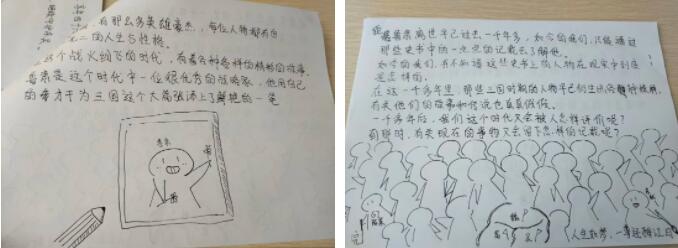 有那么多英雄豪杰，每位人物都有自
二的人生与性格。
这个战火纷飞的时代，有着各种各样的精彩的故事。
鲁肃是这个时代中一位很优秀的战略家，他用自己
的奇才干为三国这个大局张添上了鲜艳的一笔
鲁肃
鲁肃离世早已过去一千多年，如今的我们，只能通过
那些史书中的一点点的记载去了解他。
如今的我们，并不知道这些史书上的人物在现实中到底
是怎样的。
在这一千多年里，那些三国时期的人物早已衍生出各种版本，
有关他们的故事和传说也真真假假。
一千多年后，我们这个时代又会被人怎样评价呢？
到那时，有关现在的事物又会留下怎样的记载呢？
完
人生如梦，一尊还酹江月